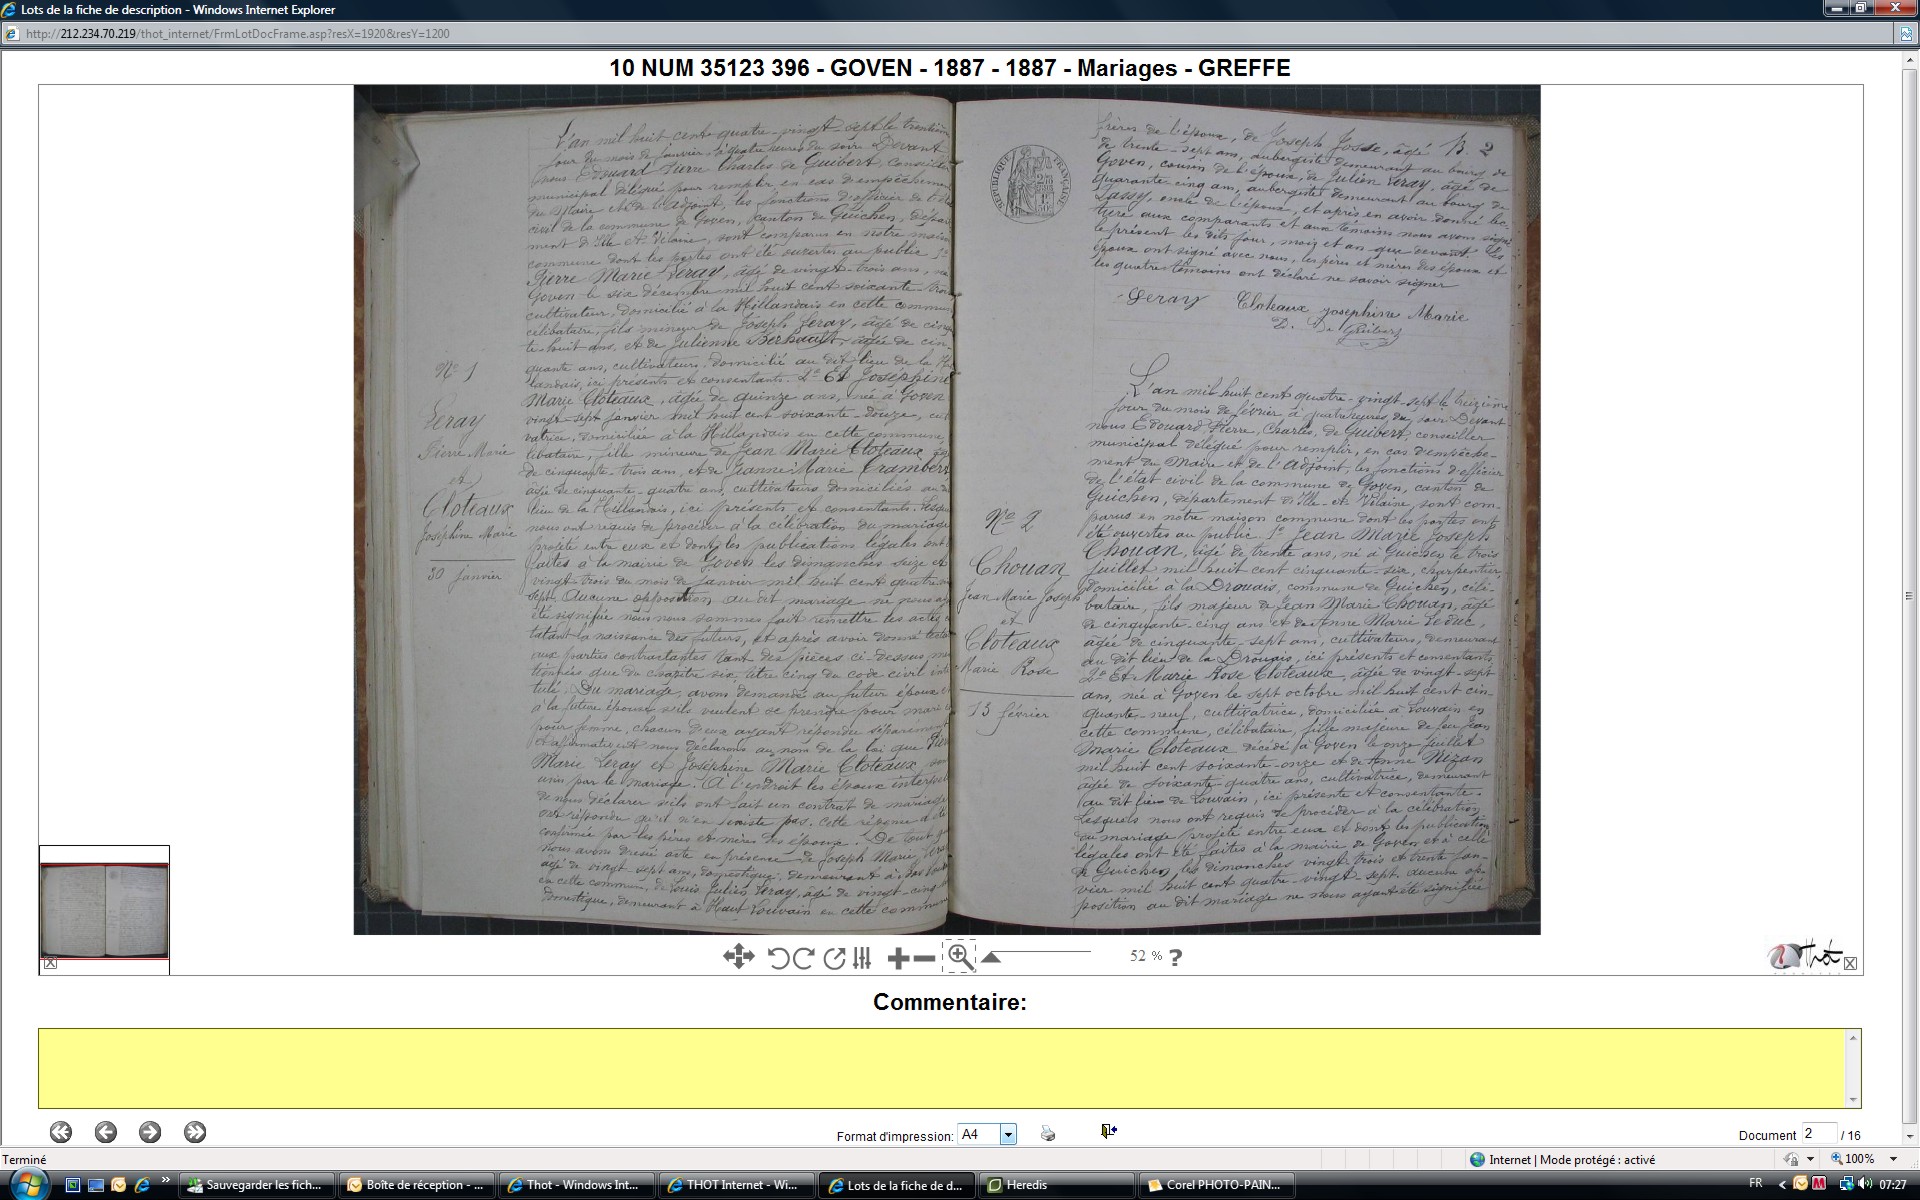 Lots de la fiche de description - Windows Internet Explorer
http://212.234.70.219/thot_internet/FrmLotDocFrame.asp?resX=1920&resY=1200
10 NUM 35123 396 - GOVEN - 1887 - 1887 - Mariages - GREFFE
L'an mil huit cent quatre-vingt-sept le trentième
jour du mois de janvier, à quatre heures du soir Devant
nous Edouard Pierre Charles de Guibert, conseiller
municipal délégué pour remplir en cas d'empêchement
du Maire et de l'Adjoint, les fonctions d'officier de l'état
civil de la commune de Goven, canton de Guichen, départ
ment d'Ille et Vilaine, sont comparus en notre maison
commune dont les portes ont été ouvertes au public 1°
Pierre Marie Leray, âgé de vingt-trois ans, né
Goven le six décembre mil huit cent soixante-trois
cultivateur, domicilié à la Hillandais en cette commune
célibataire, fils mineur de Joseph Leray, âgé de cin
te-huit ans, et de Julienne Berhault, âgée de cin
quante ans, cultivateurs, domicilié au dit lieu de la Hil
landais, ici présents et consentants. 2° Et Joséphine
Marie Cloteaux, âgée de quinze ans, née à Goven
vingt-sept janvier mil huit cent soixante-douze, cul
vatrice, domiciliée à la Hillandais en cette commune,
libataire, fille mineure de Jean Marie Cloteaux, âgé
de cinquante-trois ans, et de Jeanne Marie Crambert
âgée de cinquante-quatre ans, cultivateurs domiciliés au dit
lieu de la Hillandais, ici présents et consentants. Lesquels
nous ont requis de procéder à la célébration du mariage
projeté entre eux et dont les publications légales ont
faites à la mairie de Goven les dimanches seize et
vingt trois du mois de janvier mil huit cent quatre
sept. Aucune opposition au dit mariage ne nous ay
été signifiée nous nous sommes fait remettre les actes
tatant la naissance des futurs, et après avoir donné lecture
aux parties contractantes tant des pièces ci-dessus men
tionnées que du chapitre six, titre cinq du code civil inti
tulé: Du mariage, avons demandé au futur époux et
à la future épouse s'ils veulent se prendre pour mari et
pour femme, chacun d'eux ayant répondu séparément
et affirmativement nous déclarons au nom de la loi que Pierre
Marie Leray et Joséphine Marie Cloteaux sont
unis par le mariage. A l'endroit les époux interpel
de nous déclarer s'ils ont fait un contrat de mariage
ont répondu qu'il n'en existe pas. Cette réponse a été
confirmée par les pères et mères des époux. De tout
nous avons dressé acte en présence de Joseph Marie Leray
âgé de vingt-sept ans, domestique, demeurant
en cette commune, de Louis Julien Leray, âgé de vingt-cinq
domestique, demeurant à Haut Louvain en cette commune
N° 1
Leray
Pierre Marie
et
Cloteaux
Joséphine Marie
30 janvier
RÉPUBLIQUE FRANÇAISE
R. 2
frères de l'époux, de Joseph Josse, âgé
de trente-sept ans, aubergiste demeurant au bourg de
Goven, cousin de l'époux, de Julien Leray, âgé de
quarante-cinq ans, aubergiste demeurant au bourg de
Lassy, oncle de l'époux, et après en avoir donné lec
ture aux comparants et aux témoins nous avons signé
le présent les dits jour, mois et an que devant. Les
époux ont signé avec nous, les pères et mères des époux et
les quatre témoins ont déclaré ne savoir signer
Leray Cloteaux josephine Marie
E. De Guibert
L'an mil huit cent quatre-vingt-sept le treizième
jour du mois de février à quatre heures du soir. Devant
nous Edouard, Pierre, Charles, de Guibert, conseiller
municipal délégué pour remplir, en cas d'empêche-
ment du Maire et de l'Adjoint, les fonctions d'officier
de l'état civil de la commune de Goven, canton de
Guichen, département d'Ille-et-Vilaine, sont com-
parus en notre maison commune dont les portes ont
été ouvertes au public 1° Jean Marie Joseph
Chouan, âgé de trente ans, né à Guichen le trois
juillet mil huit cent cinquante-six, charpentier,
domicilié à la Drouais, commune de Guichen, céli-
bataire, fils majeur de Jean Marie Chouan, âgé
de cinquante-cinq ans et de Anne Marie Leduc,
âgée de cinquante-sept ans, cultivateurs, demeurant
au dit lieu de la Drouais, ici présents et consentants
2° Et Marie Rose Cloteaux, âgée de vingt-sept
ans, née à Goven le sept octobre mil huit cent cin-
quante-neuf, cultivatrice, domiciliée à Louvain en
cette commune, célibataire, fille majeure de feu Jean
Marie Cloteaux décédé à Goven le onze juillet
mil huit cent soixante-onze et de Anne Nizan
âgée de soixante-quatre ans, cultivatrice, demeurant
au dit lieu de Louvain, ici présente et consentante.
Lesquels nous ont requis de procéder à la célébration
du mariage projeté entre eux et dont les publications
légales ont été faites à la mairie de Goven et à celle
de Guichen, les dimanches vingt trois et trente jan-
vier mil huit cent quatre-vingt-sept aucune op-
position au dit mariage ne nous ayant été signifiée
N° 2
Chouan
Jean Marie Joseph
et
Cloteaux
Marie Rose
13 février
52 % ?
Thot
Commentaire:
Format d'impression: A4
Document 2 / 16
Terminé
Internet | Mode protégé : activé
100%
Sauvegarder les fich...
Boîte de réception - ...
Thot - Windows Int...
THOT Internet - Wi...
Lots de la fiche de d...
Heredis
Corel PHOTO-PAIN...
FR
07:27